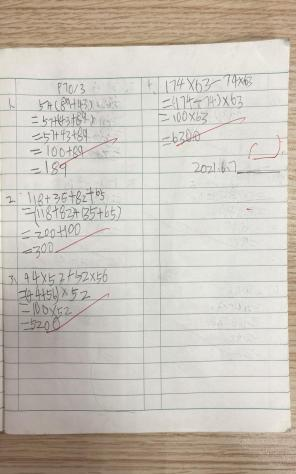 P70/3
1、57+(89+43)
=57+43+89
=57+43+89
=100+89
=189
2. 118+35+82+65
=(118+82)+(35+65)
=200+100
=300
3、44×52+52×56
=(44+56)×52
=100×52
=5200
4、174×63-74×63
=(174-74)×63
=100×63
=6300
2021.6.7